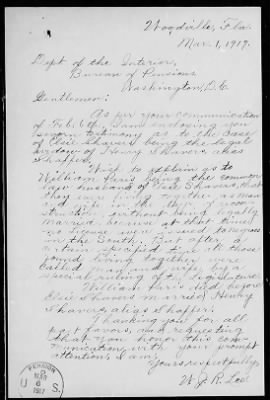 Woodville, Fla.
Mar. 1, 1917.
Dept of the Interior,
Bureau of Pensions
Washington, D.C.
Gentlemen:
As per your communication
of Feb, 6th, I am enclosing you
sworn testimony as to the case
of Elsie Shavers being the legal
widow of Henry Shavers, alias
Shaffer.
Wish to explain as to
William Paris being the common
law husband of Elsie Shavers, that
they were living together as man
and wife in the days of recon-
struction, without being legally
married, because at that time
no license were issued to negroes
in the South. But after a
certain specified time all those
found living together were
called man and wife by a
special ruling of the Legislature.
William Paris died before
Elsie Shavers married Henry
Shavers, alias Shaffer.
Thanking you for all
past favors, and requesting
that you honor this com-
munication, with your prompt
attention, I am,
Yours respectfully,
W. J. R. Lee
PENSION
MAR
6
1917
U. S.